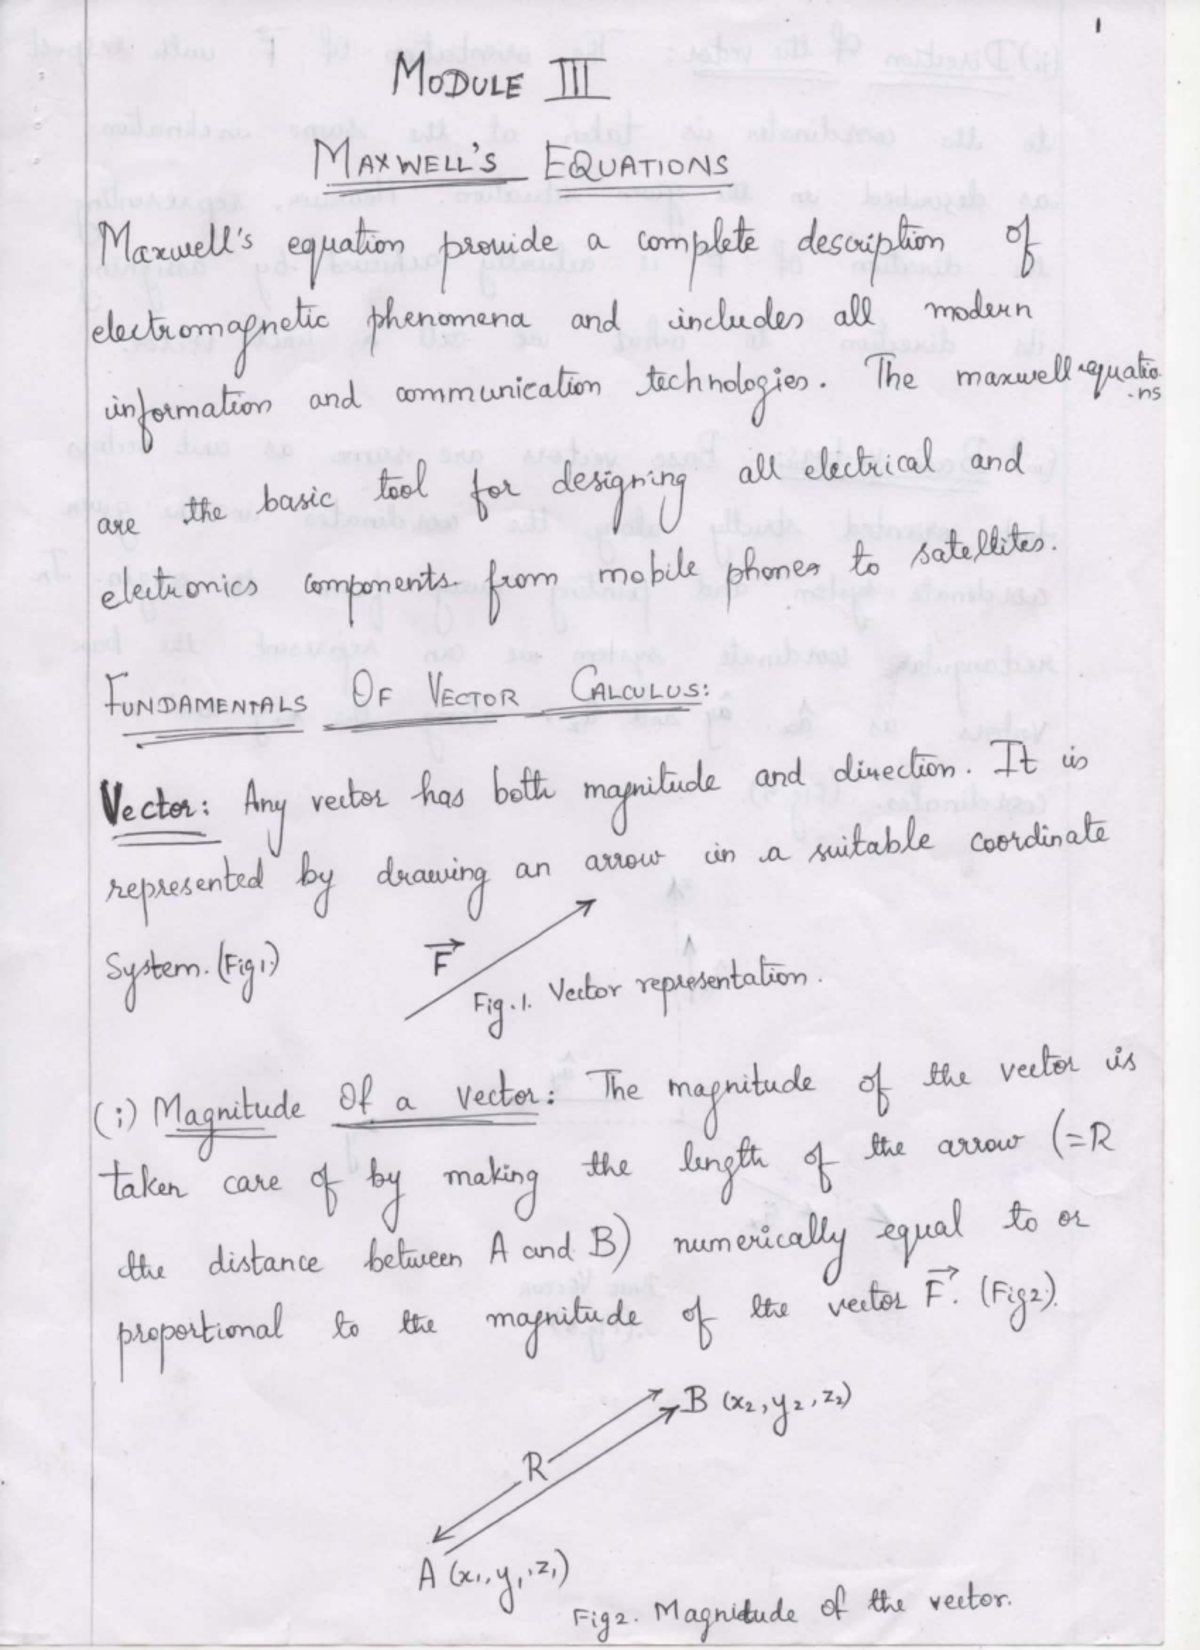 1
MODULE III
MAXWELL'S EQUATIONS
Maxwell's equation provide a complete description of
electromagnetic phenomena and includes all modern
information and communication technologies. The maxwell equatio
-ns
are the basic tool for designing all electrical and
electronics components from mobile phones to satellites.
FUNDAMENTALS OF VECTOR CALCULUS:
Vector: Any vector has both magnitude and direction. It is
represented by drawing an arrow in a suitable coordinate
System. (Fig1.)
F⃗
Fig.1. Vector representation.
(i) Magnitude Of a vector: The magnitude of the vector is
taken care of by making the length of the arrow (=R
the distance between A and B) numerically equal to or
proportional to the magnitude of the vector F⃗. (Fig2).
B (x₂, y₂, z₂)
R
A (x₁, y₁, z₁)
Fig2. Magnitude of the vector.